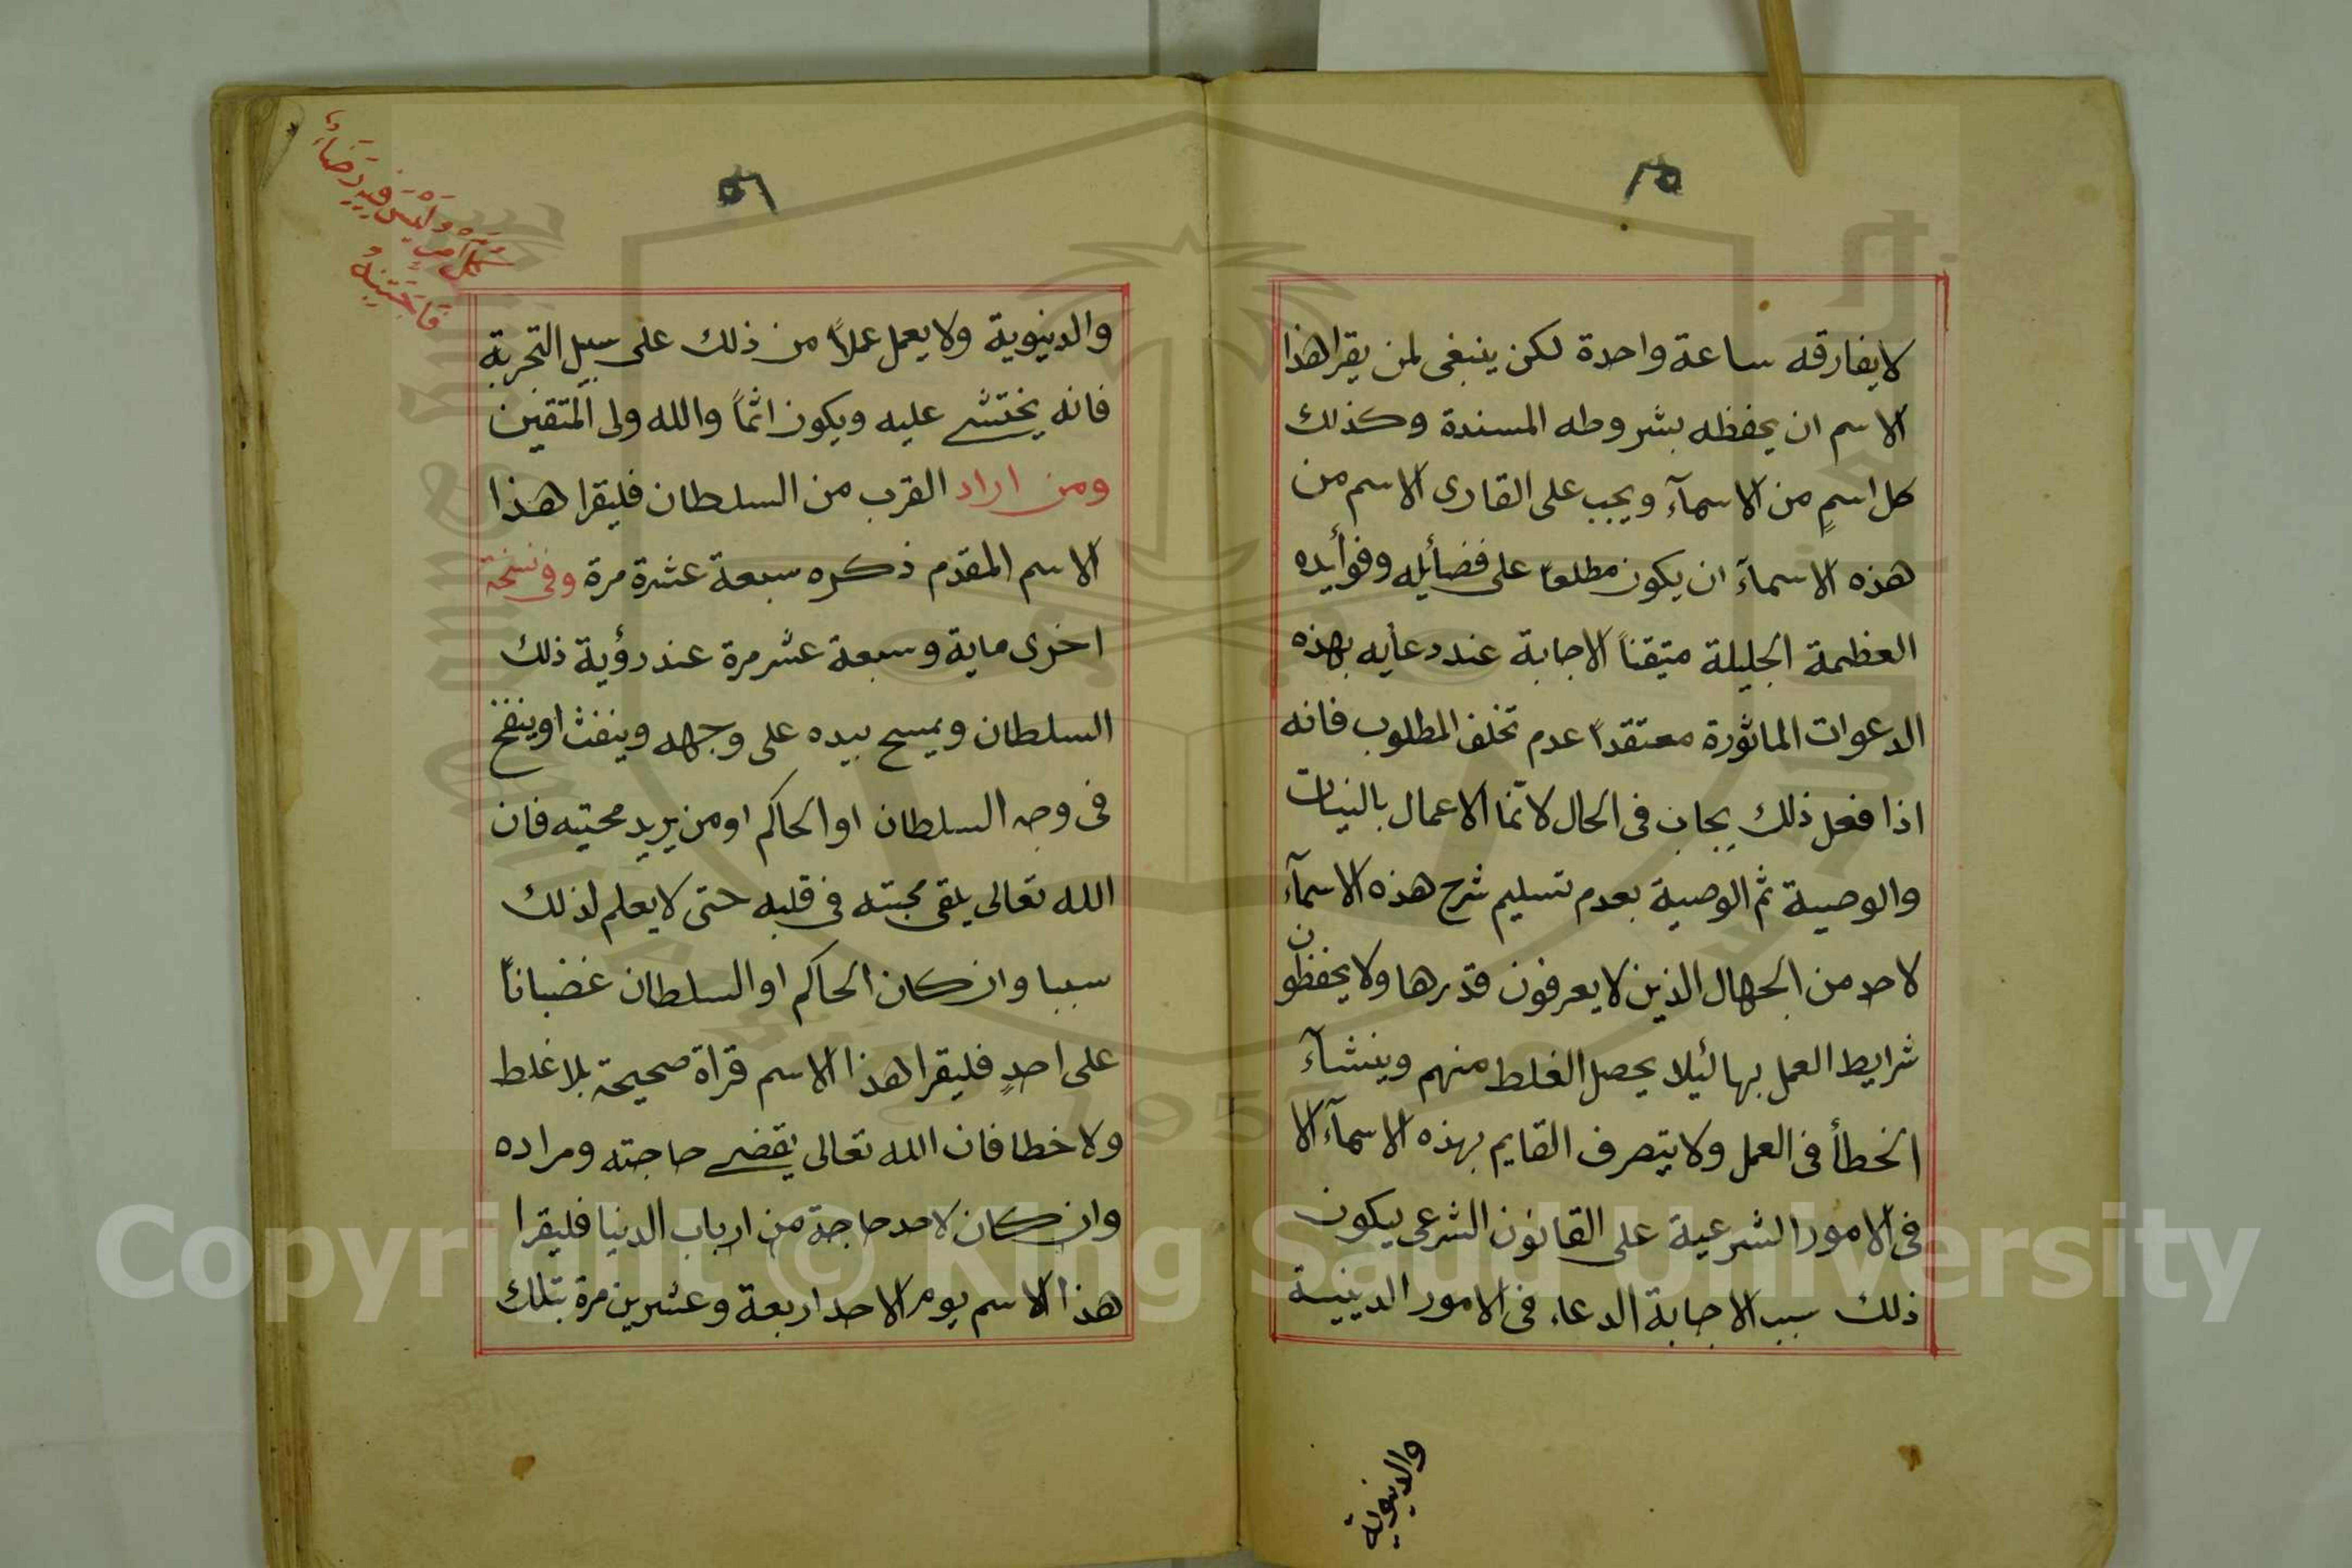 لايفارقه ساعة واحدة لكن ينبغى لمن يقرا هذا
الاسم ان يحفظه بشروطه المسندة وكذلك
كل اسمٍ من الاسمآء ويجب على القارى الاسم من
هذه الاسمآء ان يكون مطلعاً على فضأيله وفوأيده
العظيمة الجليلة متيقناً الاجابة عند دعأيه بهذه
الدعوات الماثورة معتقداً عدم تخلف المطلوب فانه
اذا فعل ذلك يجاب فى الحال لانّما الاعمال بالنيات
والوصية ثم الوصية بعدم تسليم شرح هذه الاسمآء
لاحد من الجهال الذين لايعرفون قدرها ولايحفظون
شرايط العمل بها لئيلا يحصل الغلط منهم وينشآء
الخطأ فى العمل ولايتصرف القايم بهذه الاسمآء الا
فى الامور الشرعية على القانون الشرعى ييكون
ذلك سبب الاجابة الدعاء فى الامور الدينية
والدنيوية
٥٦
والدنيوية ولايعمل عملاً من ذلك على سبيل التجربة
فانه يختشى عليه ويكون اثماً والله ولى المتقين
ومن اراد القرب من السلطان فليقرا هذا
الاسم المقدم ذكره سبعة عشرة مرة وفى نسخة
اخرى ماية وسبعة عشر مرة عند رؤية ذلك
السلطان ويمسح بيده على وجهه وينفث اوينفخ
فى وجه السلطان او الحاكم اومن يريد محبتيه فان
الله تعالى يلقى محبته فى قلبه حتى لايعلم لذلك
سببا وان كان الحاكم او السلطان غضباناً
على احدٍ فليقرا هذا الاسم قراة صحيحة بلا غلط
ولاخطا فان الله تعالى يقضى حاجته ومراده
وان كان لاحد حاجة من ارباب الدنيا فليقرا
هذا الاسم يوم الاحد اربعة وعشرين مرة بتلك
Copyright © King Saud University